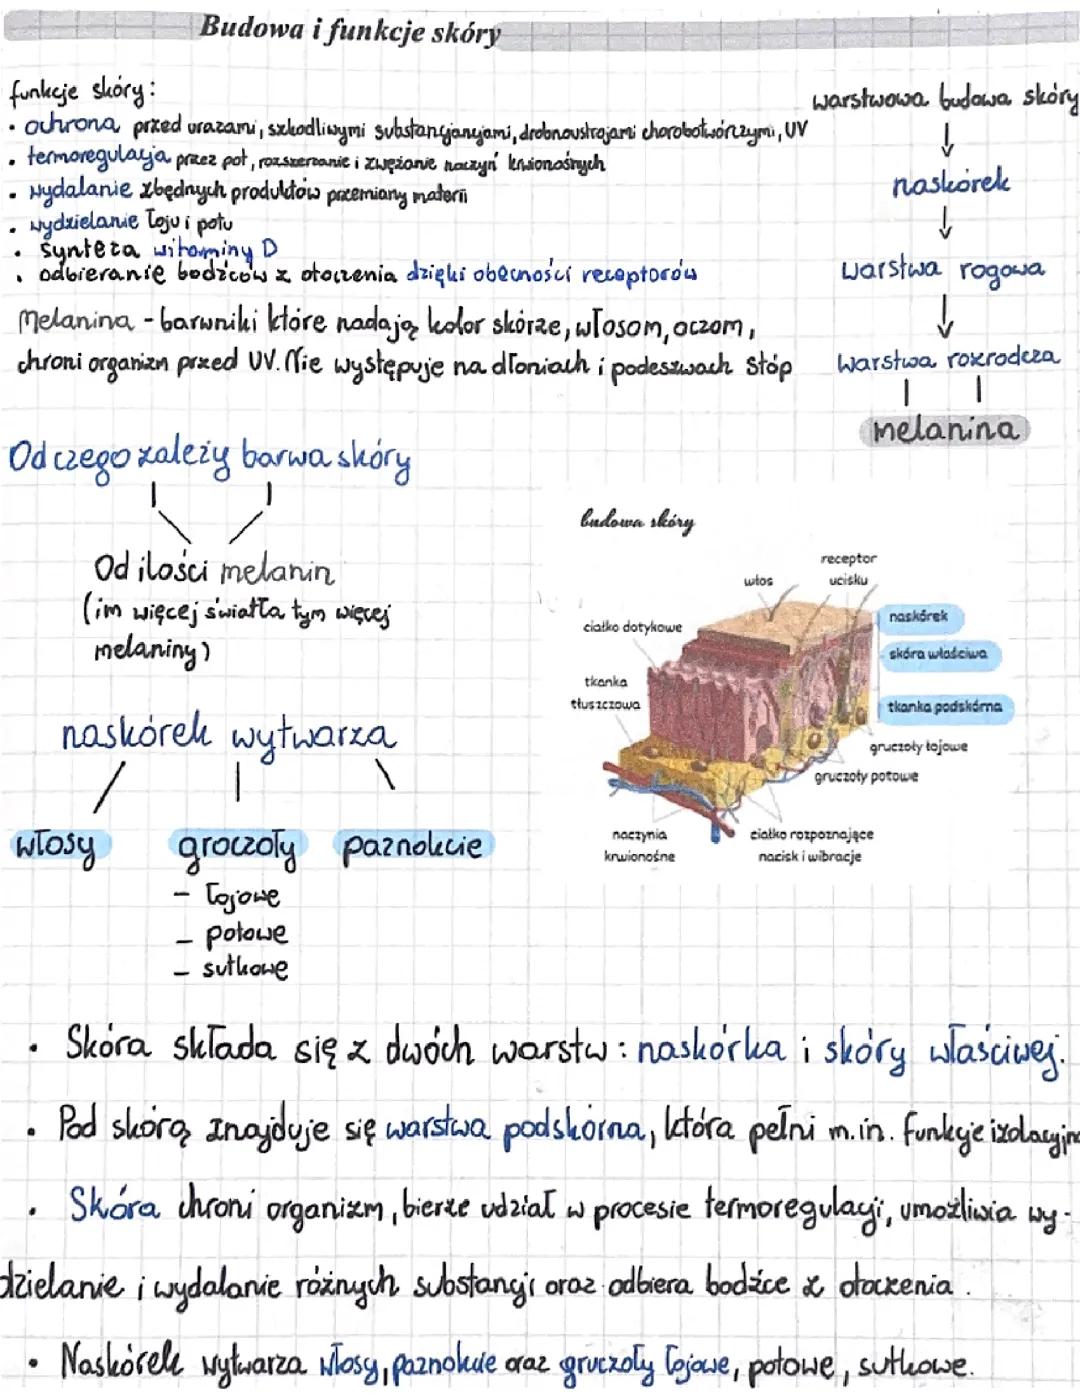 Budowa i funkcje skóry
funkcje skóry:
• ochrona przed urazami, szkodliwymi substancjancjami, drobnoustrojami chorobotwórczymi, UV
• termoregulacja przez pot, rozszerzanie i zwężanie naczyń krwionośnych
• wydalanie zbędnych produktów przemiany materii
• wydzielanie łoju i potu
• synteza witaminy D
• odbieranie bodźców z otoczenia dzięki obecności receptorów
Melanina - barwniki które nadają kolor skórze, włosom, oczom,
chroni organizm przed UV. Nie występuje na dłoniach i podeszwach stóp
warstwowa budowa skóry
naskórek
warstwa rogowa
warstwa rozrodcza
melanina
Od czego zależy barwa skóry
Od ilości melanin
(im więcej światła tym więcej
melaniny)
naskórek wytwarza
włosy groczoły paznokcie
- łojowe
- potowe
- sutkowe
budowa skóry
receptor
ucisku
włos
ciałko dotykowe
tkanka
tłuszczowa
naskórek
skóra właściwa
tkanka podskórna
gruczoły łojowe
gruczoły potowe
naczynia
krwionośne
ciałko rozpoznające
nacisk i wibracje
• Skóra składa się z dwóch warstw: naskórka i skóry właściwej.
• Pod skórą znajduje się warstwa podskórna, która pełni m.in. funkcje izolacyjną
• Skóra chroni organizm, bierze udział w procesie termoregulacji, umożliwia wy-
dzielanie i wydalanie różnych substancji oraz odbiera bodźce z otoczenia.
• Naskórek wytwarza włosy, paznokcie oraz gruczoły łojowe, potowe, sutkowe.